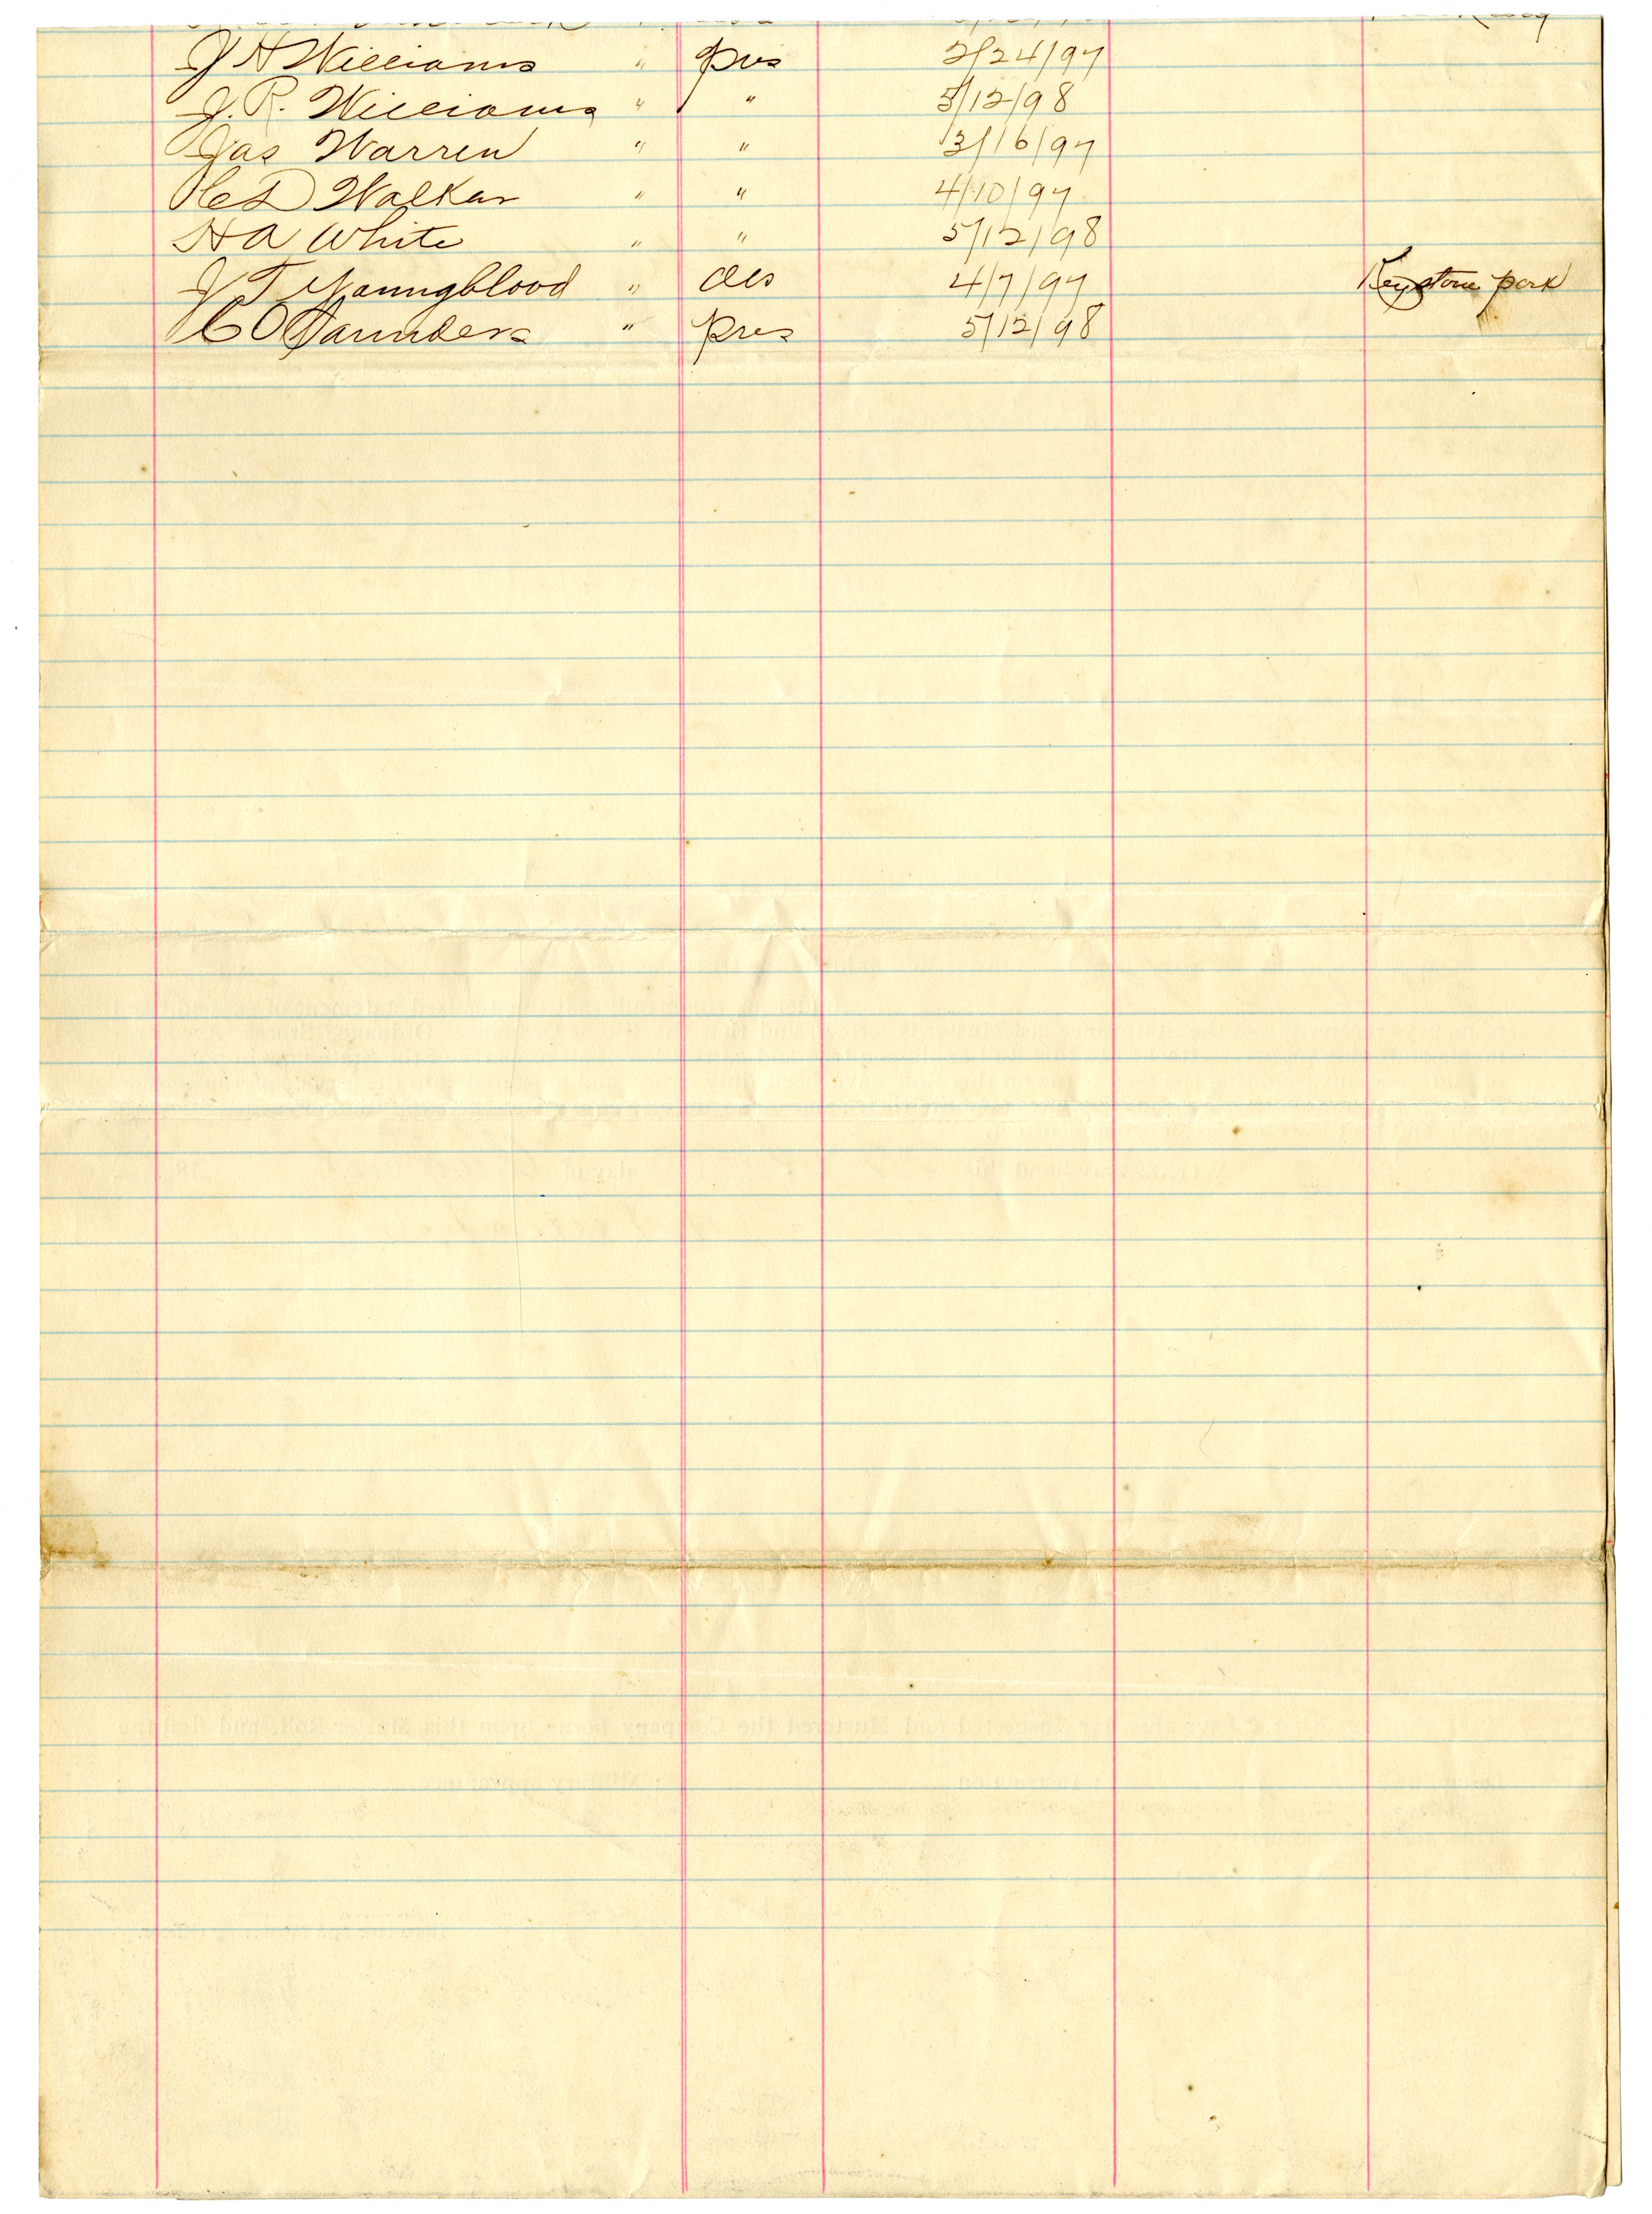 J H Williams " pres 2/24/97
J. R. Williams " " 5/12/98
Jas Warren " " 3/16/97
C D Walker " " 4/10/97
H A White " " 5/12/98
J T Youngblood " abs 4/7/97 Keystone park
C O Saunders " pres 5/12/98